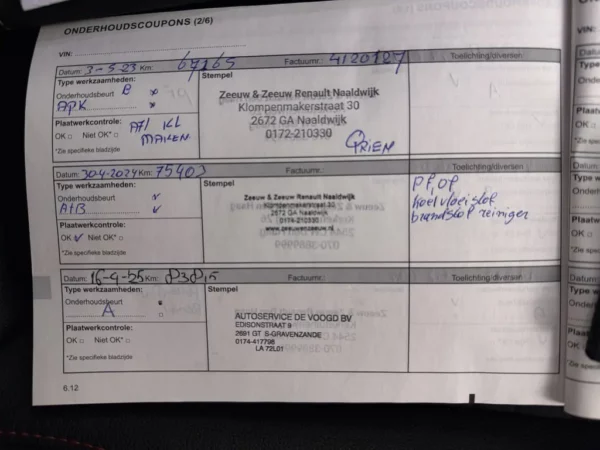 ONDERHOUDSCOUPONS (2/6)
VIN:
Datum: 3-5-23 Km: 67165 Factuurnr.: 4120127 Toelichting/diversen
Type werkzaamheden:
Onderhoudsbeurt B
APK
Plaatwerkcontrole:
OK Niet OK*
*Zie specifieke bladzijde
Stempel
Zeeuw & Zeeuw Renault Naaldwijk
Klompenmakerstraat 30
2672 GA Naaldwijk
0172-210330
Datum: 30-4-2024 Km: 75403 Factuurnr.: Toelichting/diversen
Type werkzaamheden:
Onderhoudsbeurt
A+B
Plaatwerkcontrole:
OK Niet OK*
*Zie specifieke bladzijde
Stempel
Zeeuw & Zeeuw Renault Naaldwijk
Klompenmakerstraat 30
2672 GA Naaldwijk
0174-210330
www.zeeuwenzeeuw.nl
PF, OF
koelvloeistof
brandstof reiniger
Datum: 16-4-25 Km: Factuurnr.: Toelichting/diversen
Type werkzaamheden:
Onderhoudsbeurt
A
Plaatwerkcontrole:
OK Niet OK*
*Zie specifieke bladzijde
Stempel
AUTOSERVICE DE VOOGD BV
EDISONSTRAAT 9
2691 GT S-GRAVENZANDE
0174-417798
LA 72L01
6.12
VIN: